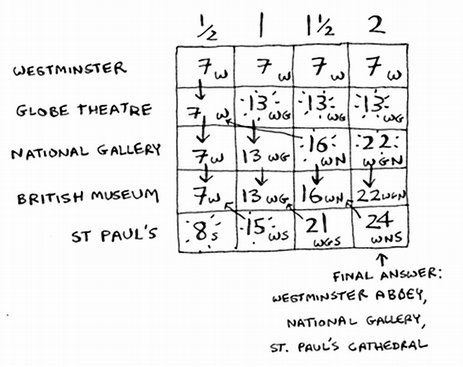 ½ 1 1½ 2
WESTMINSTER 7W 7W 7W 7W
GLOBE THEATRE 7W 13WG 13WG 13WG
NATIONAL GALLERY 7W 13WG 16WN 22WGN
BRITISH MUSEUM 7W 13WG 16WN 22WGN
ST PAUL'S 8S 15WS 21WGS 24WNS
FINAL ANSWER:
WESTMINSTER ABBEY,
NATIONAL GALLERY,
ST. PAUL'S CATHEDRAL